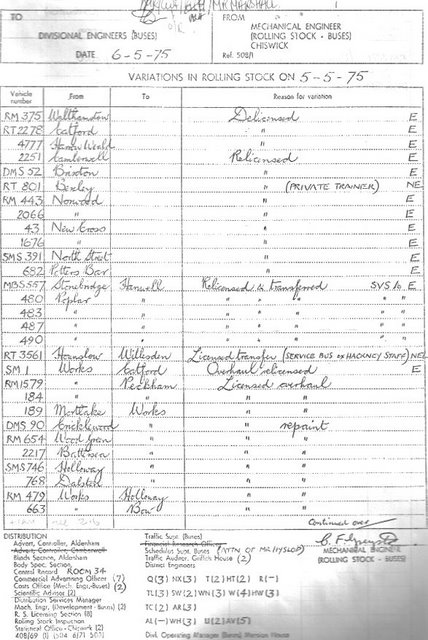 MR MARSHALL
TO FROM
DIVISIONAL ENGINEERS (BUSES) MECHANICAL ENGINEER
(ROLLING STOCK - BUSES)
CHISWICK
DATE 6-5-75 Ref. 508/1
VARIATIONS IN ROLLING STOCK ON 5-5-75
Vehicle number From To Reason for variation
RM 375 Walthamstow Delicensed E
RT 2278 Catford " E
4777 Harrow Weald " E
2251 Camberwell Relicensed E
DMS 52 Brixton " E
RT 801 Bexley " (PRIVATE TRAINER) NE
RM 443 Norwood " E
2066 " " E
43 New Cross " E
1676 " " E
SMS 391 North Street " E
682 Potters Bar " E
MBS 557 Stonebridge Hanwell Relicensed & transferred SVS to E
480 Poplar " " " " " "
483 " " " " " " "
487 " " " " " " "
490 " " " " " " "
RT 3561 Hounslow Willesden Licensed transfer (SERVICE BUS ex HACKNEY STAFF) NE
SM 1 Works Catford Overhaul relicensed E
RM 1579 " Peckham Licensed overhaul
184 " " " "
189 Mortlake Works " "
DMS 90 Cricklewood " " repaint
RM 654 Wood Green " " "
2217 Battersea " " "
SMS 746 Holloway " " "
768 Dalston " " "
RM 479 Works Holloway " "
663 " Bow " "
Continued over
DISTRIBUTION
Advert. Controller, Aldenham
Advert. Controller, Camberwell
Blinds Section, Aldenham
Body Spec. Section,
Central Record ROOM 34
Commercial Advertising Officer (7)
Costs Officer (Mech. Engr. Buses) (2)
Scientific Adviser (2)
Distribution Services Manager
Mech. Engr. (Development - Buses) (2)
R. S. Licensing Section (8)
Rolling Stock Inspection
Statistical Officer - Chiswick (2)
408/69 (1) (504 6/71 507)
Traffic Supt. (Buses)
Financial Research Officer
Schedules Supt. Buses (ATTN OF MR HYSLOP)
Traffic Auditor, Griffith House (2)
District Engineers
Q(3) NX(3) T(2) HT(2) R(-)
TL(3) SW(2) WN(3) W(4) HW(3)
TC(2) AR(3)
AL(-) WH(3) U(2) AV(5)
Divl. Operating Manager (Buses) Mansion House
MECHANICAL ENGINEER
(ROLLING STOCK - BUSES)